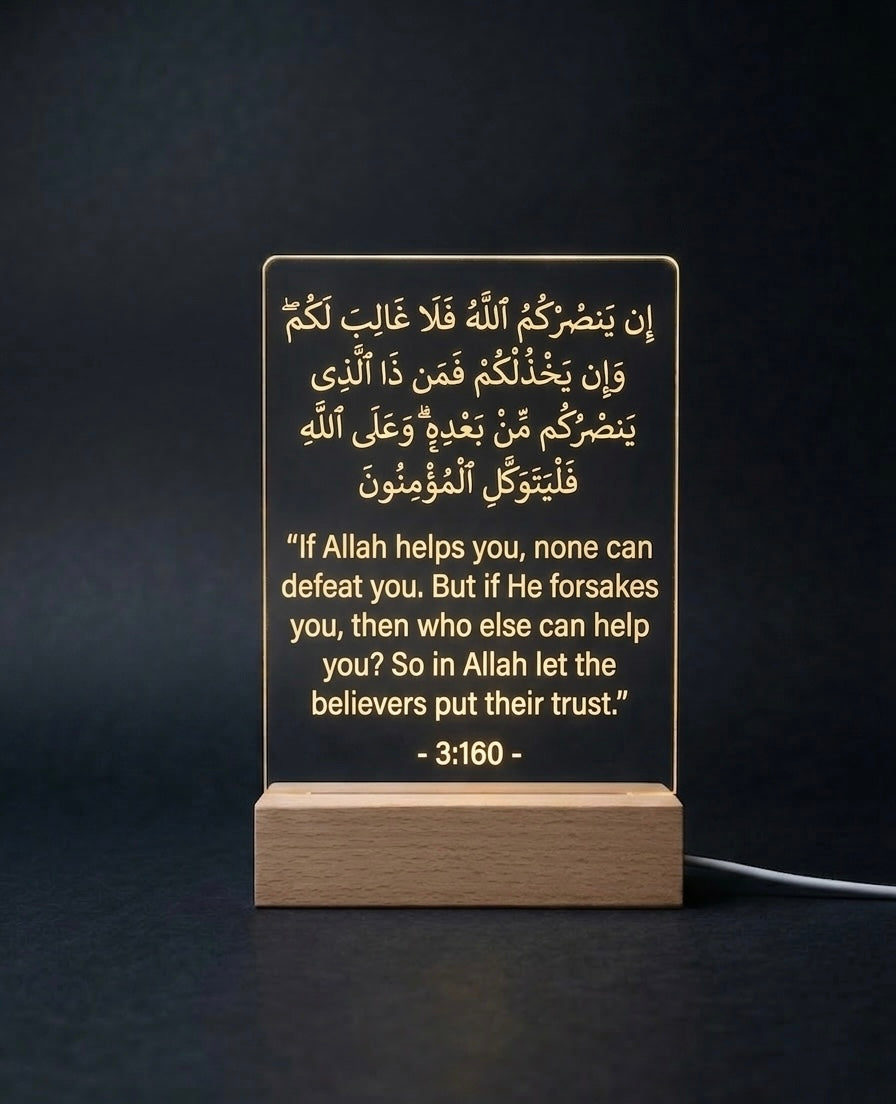 إِن يَنصُرْكُمُ ٱللَّهُ فَلَا غَالِبَ لَكُمْ ۖ
وَإِن يَخْذُلْكُمْ فَمَن ذَا ٱلَّذِى
يَنصُرُكُم مِّنۢ بَعْدِهِۦ ۗ وَعَلَى ٱللَّهِ
فَلْيَتَوَكَّلِ ٱلْمُؤْمِنُونَ
“If Allah helps you, none can
defeat you. But if He forsakes
you, then who else can help
you? So in Allah let the
believers put their trust.”
- 3:160 -